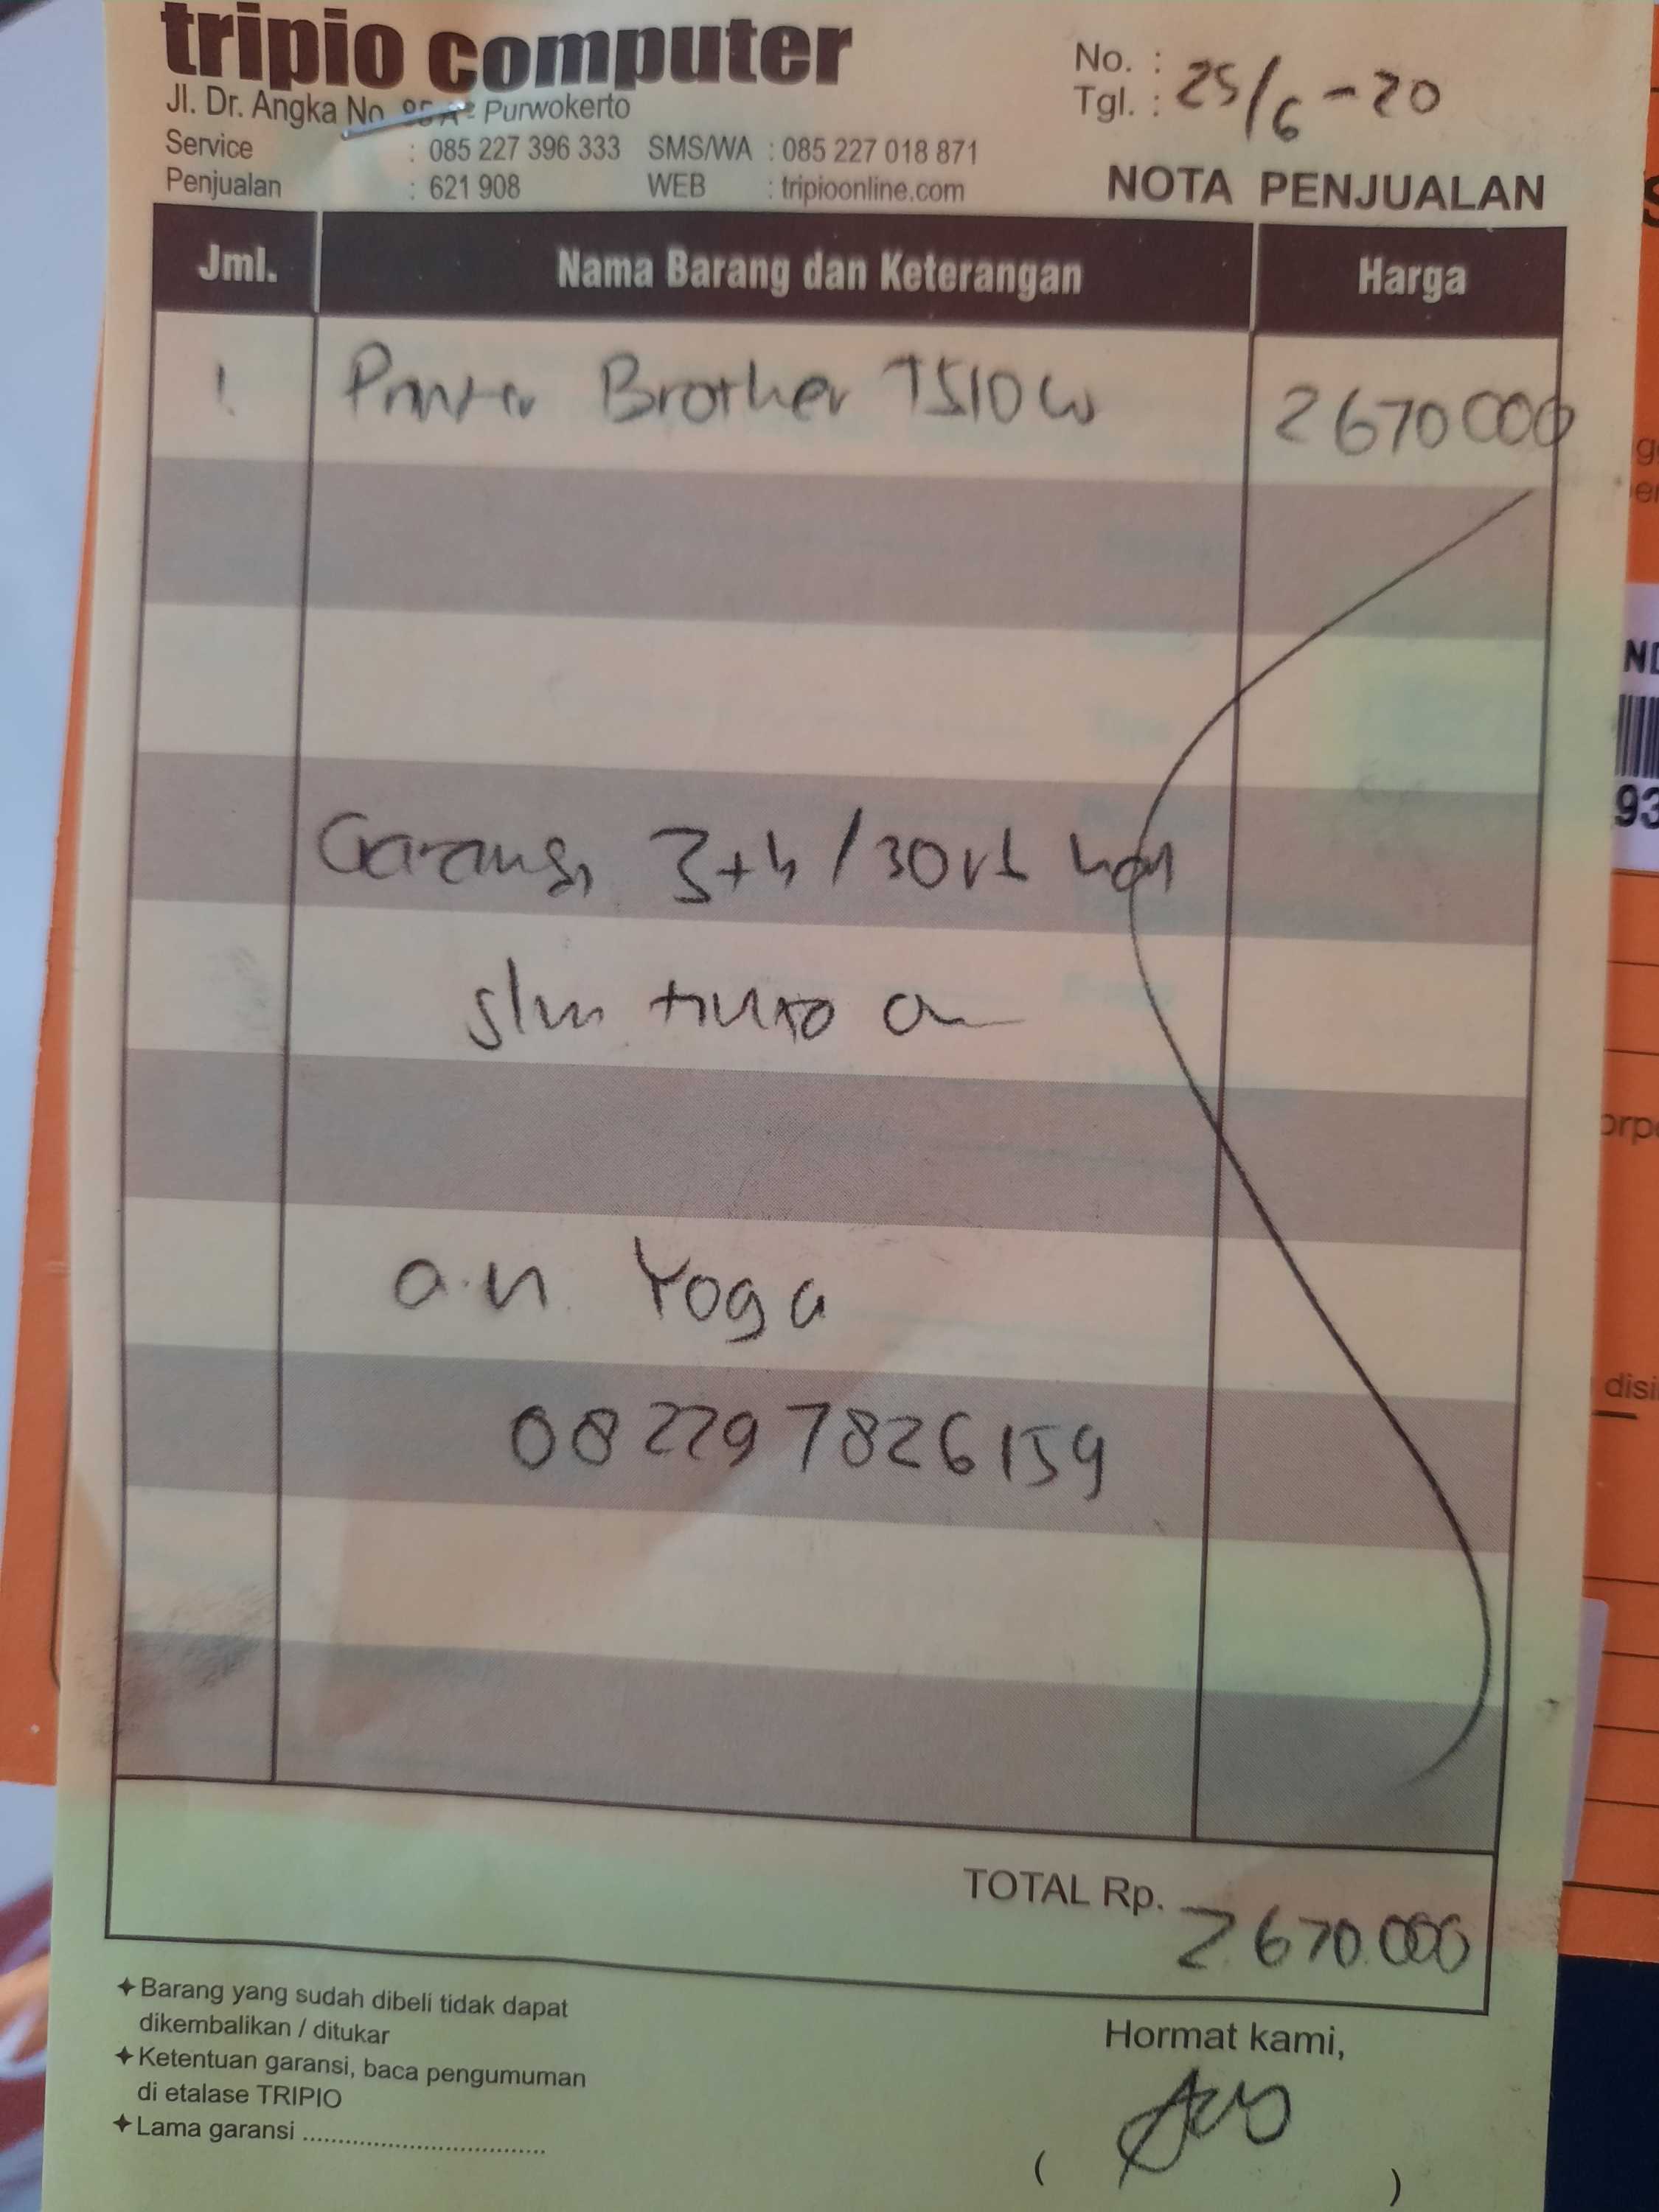 tripio computer
No. :
Jl. Dr. Angka No. Purwokerto
Tgl. : 25/6-20
Service : 085 227 396 333 SMS/WA : 085 227 018 871
Penjualan : 621 908 WEB : tripioonline.com
NOTA PENJUALAN
Jml. Nama Barang dan Keterangan Harga
1. Printer Brother T510W 2670000
Garansi 3th / 30
a.n. Yoga
082297826159
TOTAL Rp. 2.670.000
Barang yang sudah dibeli tidak dapat
dikembalikan / ditukar
Ketentuan garansi, baca pengumuman
di etalase TRIPIO
Lama garansi ..................................
Hormat kami,
( )
ND
93
orp
disi